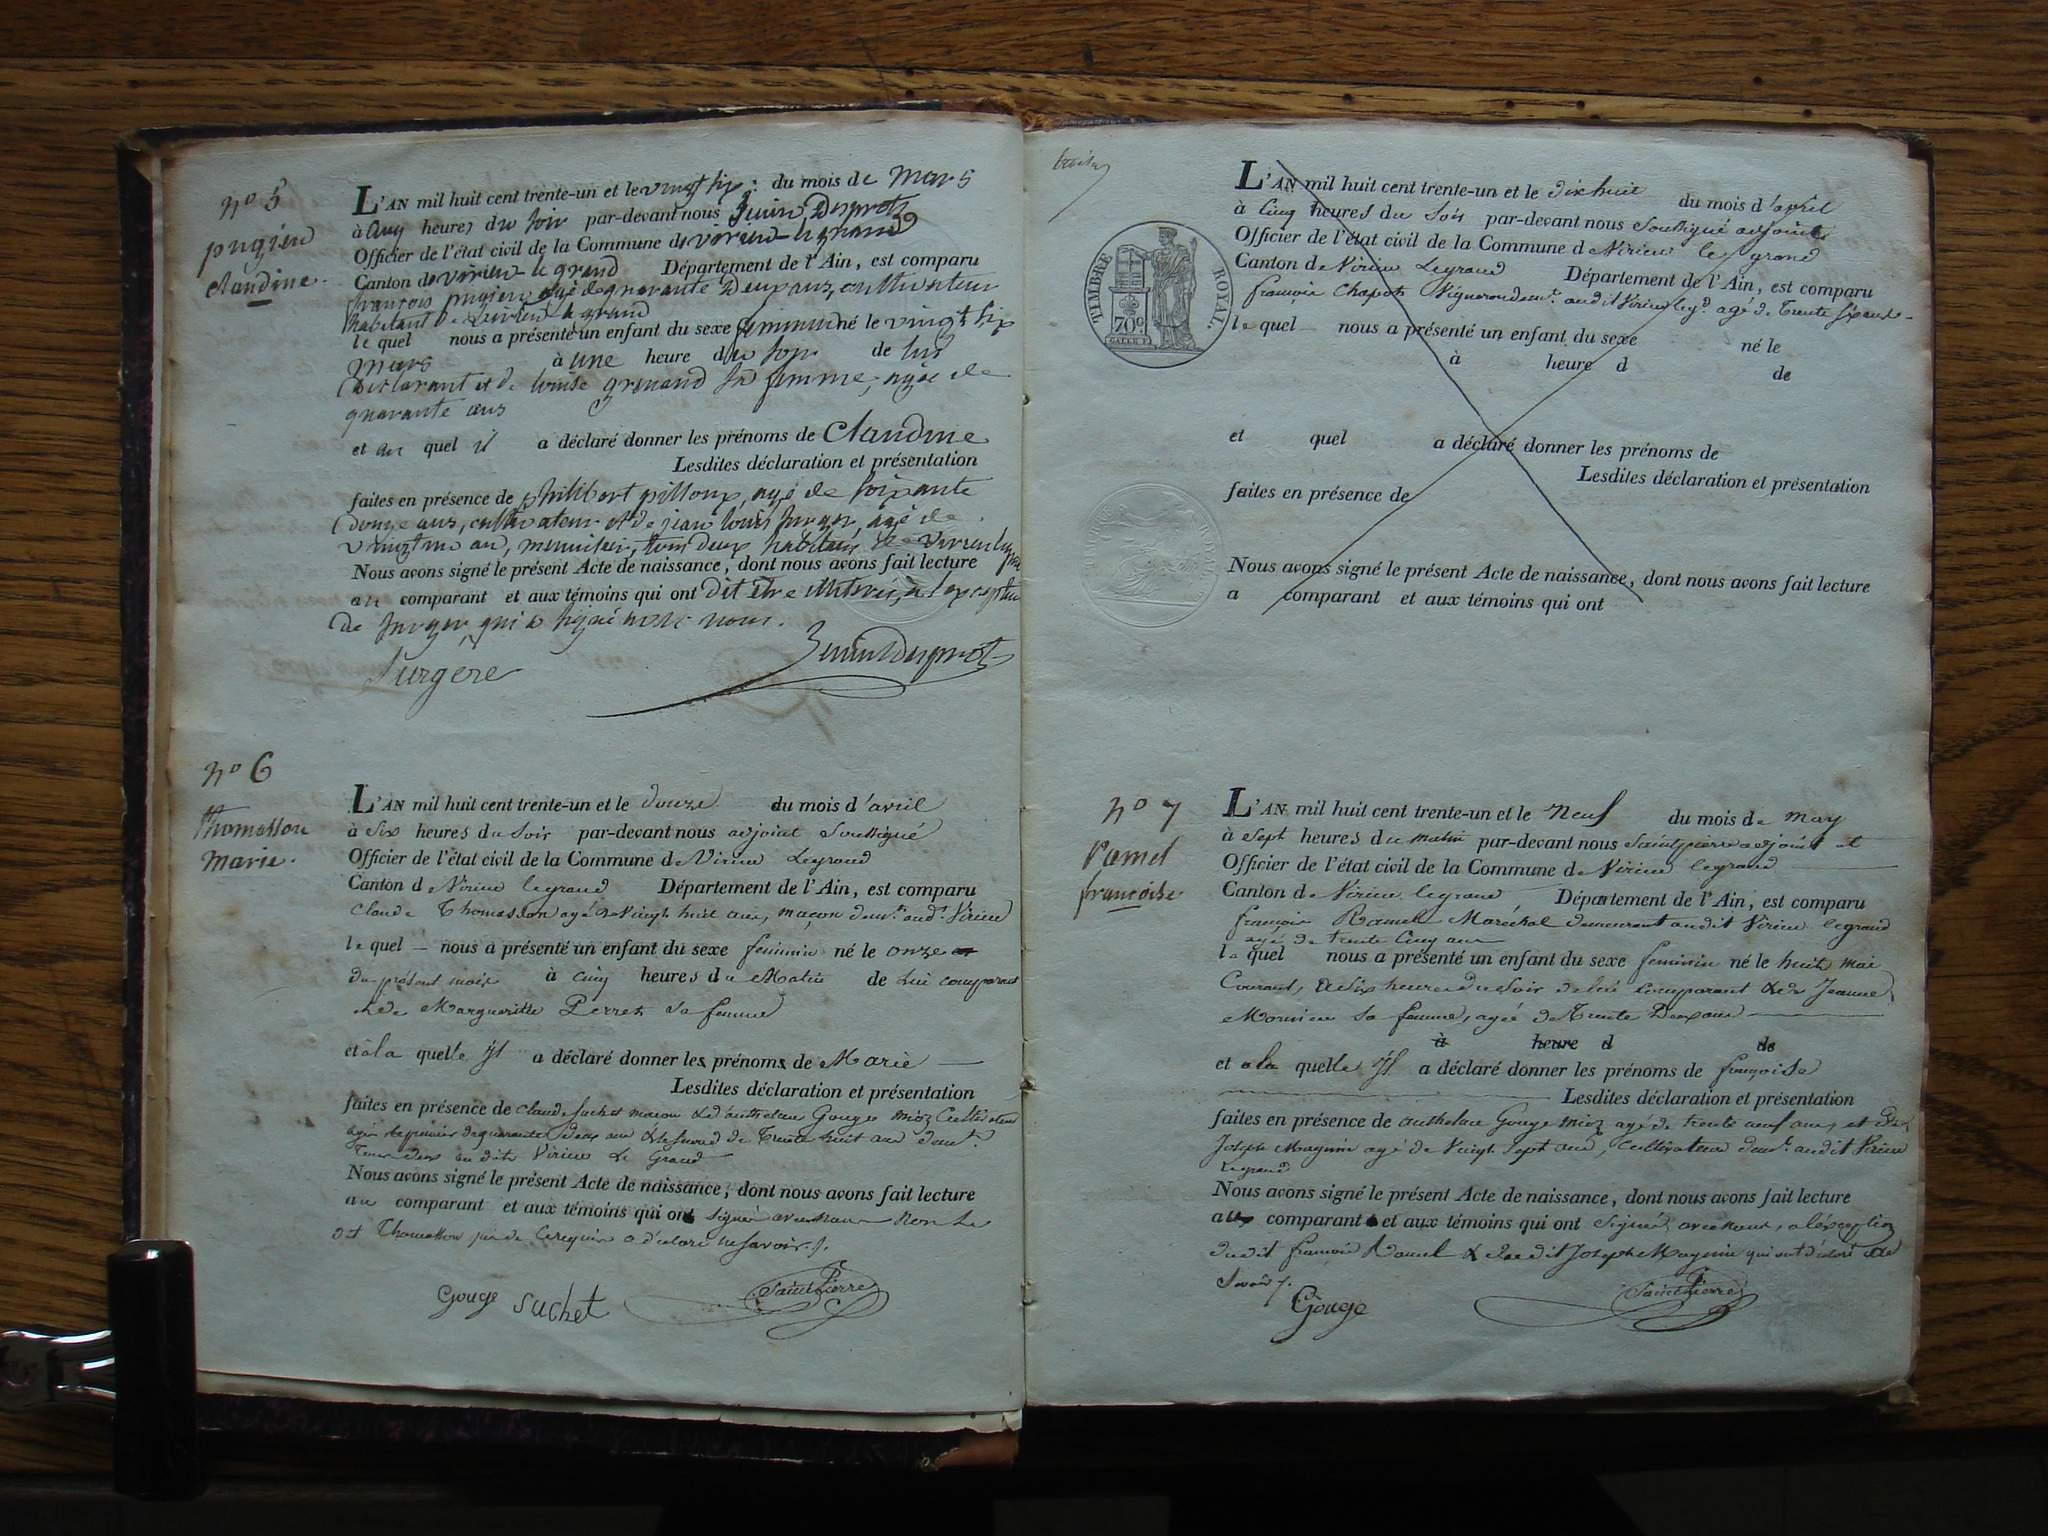 nº 5
pugieu
claudine.
L'AN mil huit cent trente-un et le vingt six du mois de mars
à cinq heures du soir par-devant nous
Officier de l'état civil de la Commune de virieu le grand
Canton de virieu le grand Département de l'Ain, est comparu
françois pugieu agé de quarante deux ans, cultivateur
habitant de virieu le grand
le quel nous a présenté un enfant du sexe feminin né le vingt six
mars à une heure du soir de lui
déclarant et de louise grenand sa femme, agée de
quarante ans
et au quel il a déclaré donner les prénoms de Claudine
Lesdites déclaration et présentation
faites en présence de philibert pilloux, agé de soixante
douze ans, cultivateur et de jean louis surger, agé de
vingt un an, menuisier, tous deux habitans de virieu legrand
Nous avons signé le présent Acte de naissance, dont nous avons fait lecture
au comparant et aux témoins qui ont dit être illiterés, à l'exception
de surger, qui a signé avec nous.
Surgere
nº 6
thomasson
marie.
L'AN mil huit cent trente-un et le douze du mois d'avril
à six heures du soir par-devant nous adjoint soussigné
Officier de l'état civil de la Commune de Virieu Legrand
Canton de Virieu legrand Département de l'Ain, est comparu
Claude Thomasson agé de vingt huit ans, maçon demt. audt. Virieu
le quel nous a présenté un enfant du sexe feminin né le onze
du présent mois à cinq heures du Matin de Lui comparant
et de Marguerite Perret sa femme
et à la quelle Yl a déclaré donner les prénoms de Marie
Lesdites déclaration et présentation
faites en présence de Claude Suchet macon & d'anthelme Gouge mioz Cultivateur
agés le premier de quarante deux ans & le second de Trente huit ans demt.
Tous deux au dit Virieu Le Grand
Nous avons signé le présent Acte de naissance, dont nous avons fait lecture
au comparant et aux témoins qui ont signé avec nous non le
dt Thomasson pour de ce requis a déclaré ne savoir.
Gouge Suchet SaintPierre
TIMBRE ROYAL.
70c
L'AN mil huit cent trente-un et le dix huit du mois d'avril
à cinq heures du soir par-devant nous soussigné adjoint
Officier de l'état civil de la Commune de Virieu le grand
Canton de Virieu Legrand Département de l'Ain, est comparu
françois Chapot Vigneron demt. audit Virieu le gd. agé de Trente six ans
le quel nous a présenté un enfant du sexe né le
à heure d de
et quel a déclaré donner les prénoms de
Lesdites déclaration et présentation
faites en présence de
Nous avons signé le présent Acte de naissance, dont nous avons fait lecture
a comparant et aux témoins qui ont
nº 7
ramel
francoise
L'AN mil huit cent trente-un et le Neuf du mois de may
à sept heures du matin par-devant nous Saintpierre adjoint et
Officier de l'état civil de la Commune de Virieu legrand
Canton de Virieu legrand Département de l'Ain, est comparu
françois Ramel Maréchal demeurant audit Virieu legrand
agé de trente cinq ans
le quel nous a présenté un enfant du sexe feminin né le huit mai
Courant, à six heures du soir de lui comparant & de Jeanne
sa femme, agée de Trente Deux ans
à heure d de
et a la quelle Yl a déclaré donner les prénoms de françoise
Lesdites déclaration et présentation
faites en présence de anthelme Gouge mioz agé de trente neuf ans, et de
Joseph Maginin agé de Vingt sept ans, Cultivateurs demt. audit Virieu
Legrand
Nous avons signé le présent Acte de naissance, dont nous avons fait lecture
au comparant et aux témoins qui ont signé, avec nous, a l'éxception
dudit françois Ramel & dudit Joseph Maginin qui ont déclaré ne
Savoir.
Gouge SaintPierre